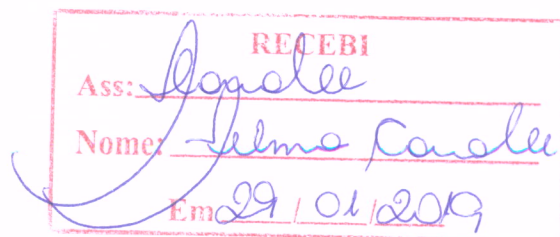 RECEBI
Ass:
Nome: Telma
Em 29 / 01 / 2019